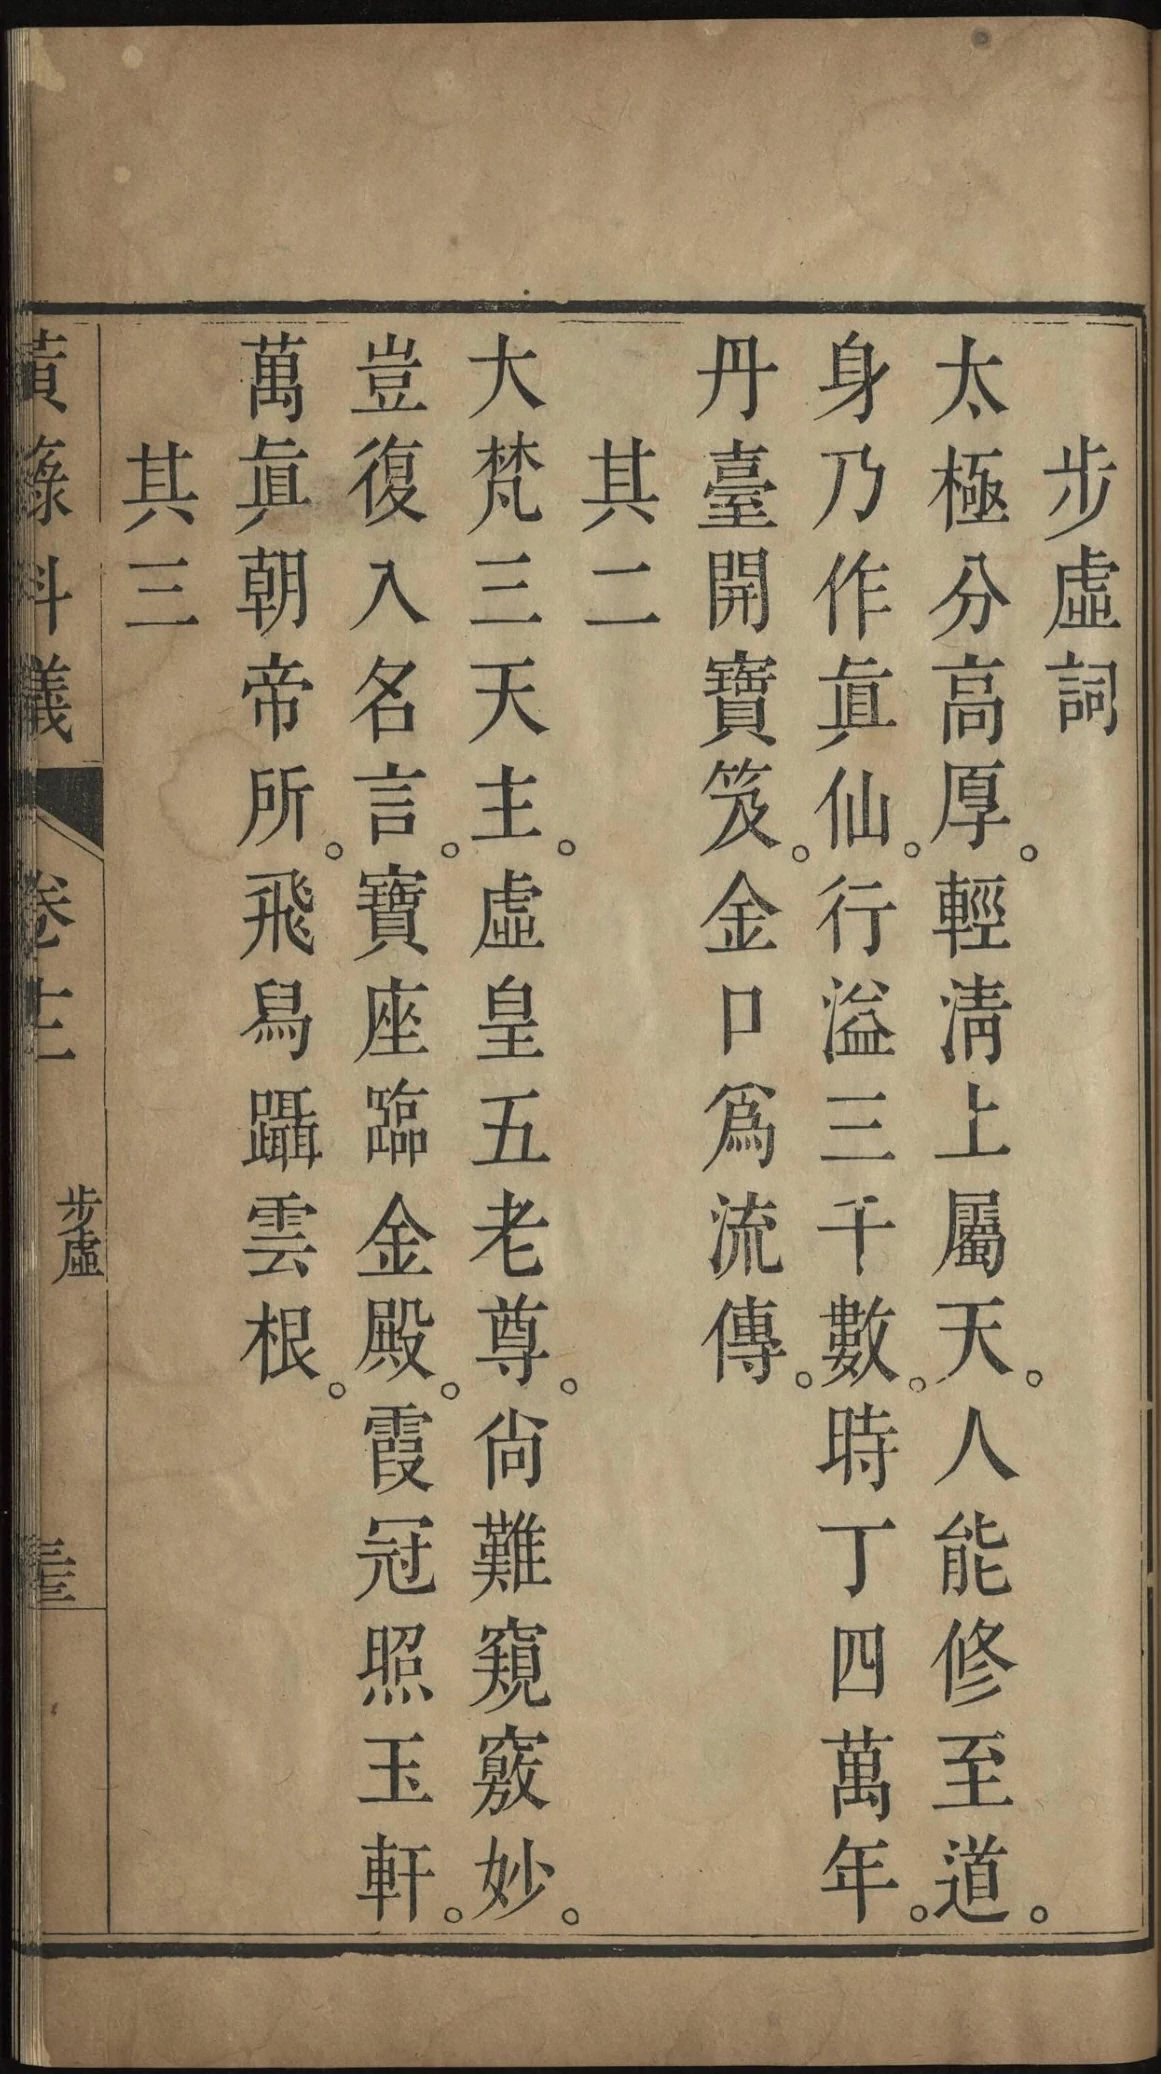 步虛詞
太極分高厚。輕淸上屬天。人能修至道。
身乃作眞仙。行溢三千數。時丁四萬年。
丹臺開寶笈。金口爲流傳。
其二
大梵三天主。虛皇五老尊。尙難窺竅妙。
豈復入名言。寶座臨金殿。霞冠照玉軒。
萬眞朝帝所。飛舄躡雲根。
其三
黃籙科儀
步虛